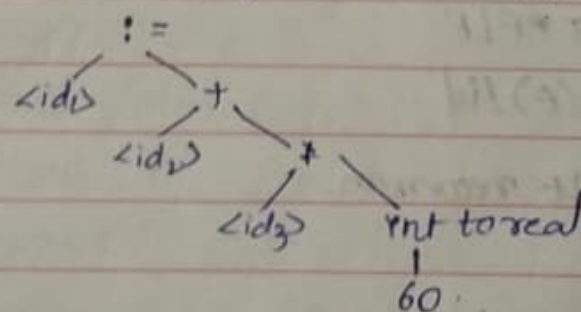 :=
<id1> +
<id2> *
<id3> int to real
60